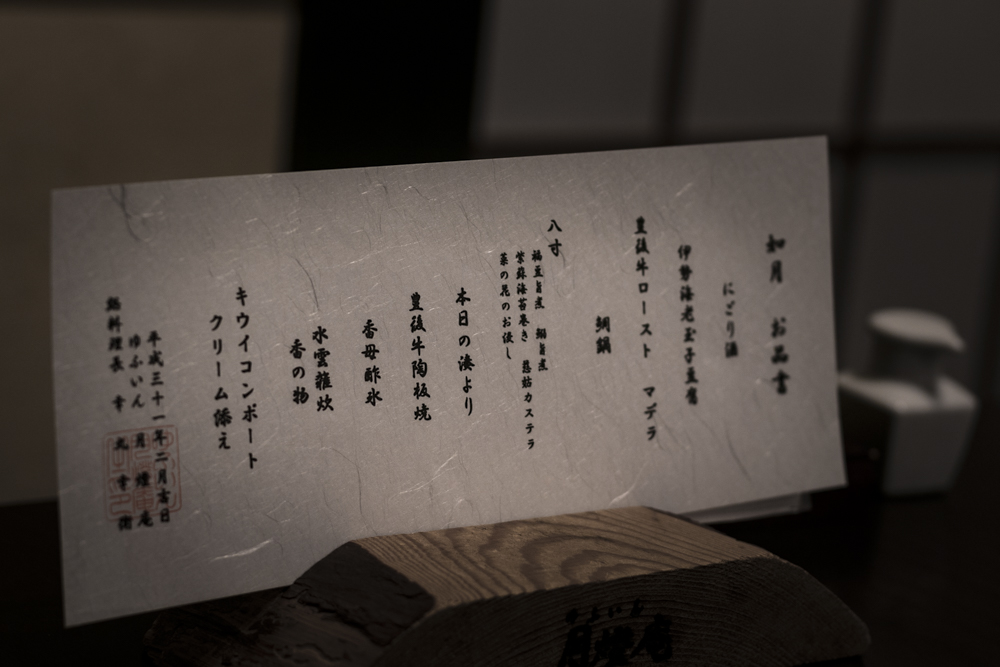 如月 お品書
にごり酒
伊勢海老玉子豆腐
豊後牛ロースト マデラ
鯛鍋
八寸
福豆旨煮 鯛旨煮
紫蘇海苔巻き 慈姑カステラ
菜の花のお浸し
本日の湊より
豊後牛陶板焼
香母酢氷
水雲雑炊
香の物
キウイコンポート
クリーム添え
平成三十一年二月吉日
ゆふいん 月燈庵
総料理長 幸 丸
ゆふいん
月燈庵